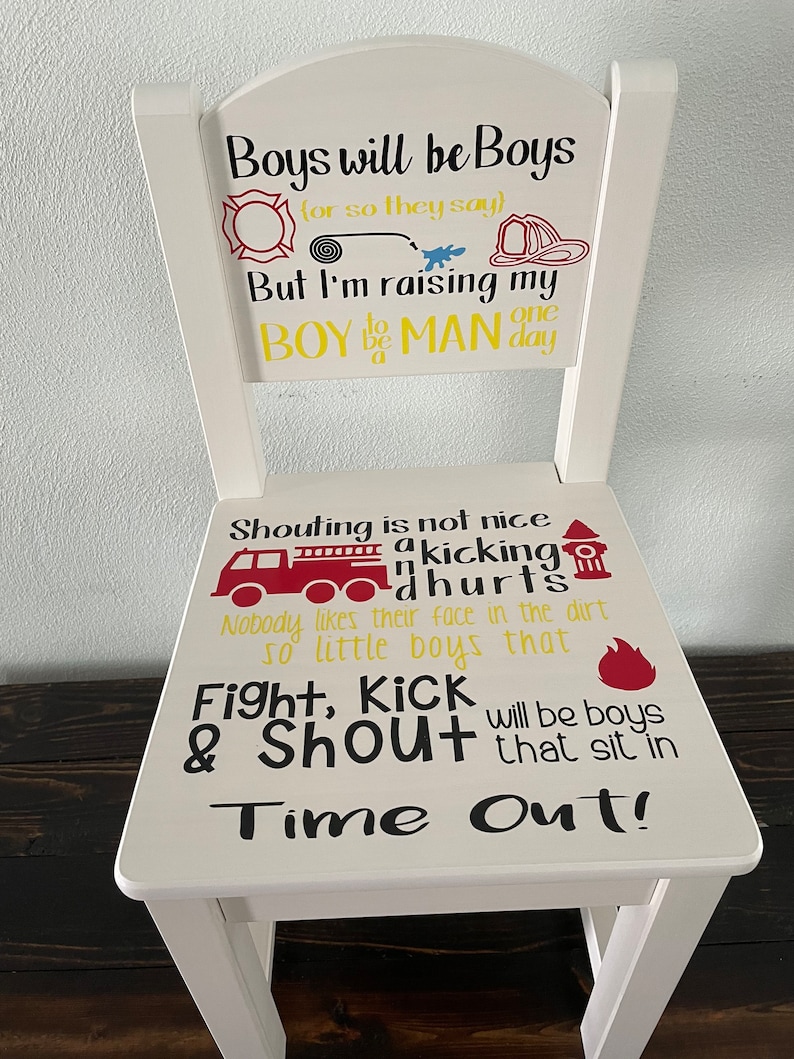 Boys will be Boys
{or so they say}
But I'm raising my
BOY to be a MAN one day
Shouting is not nice
and kicking
hurts
Nobody likes their face in the dirt
so little boys that
Fight, Kick
& Shout will be boys
that sit in
Time Out!